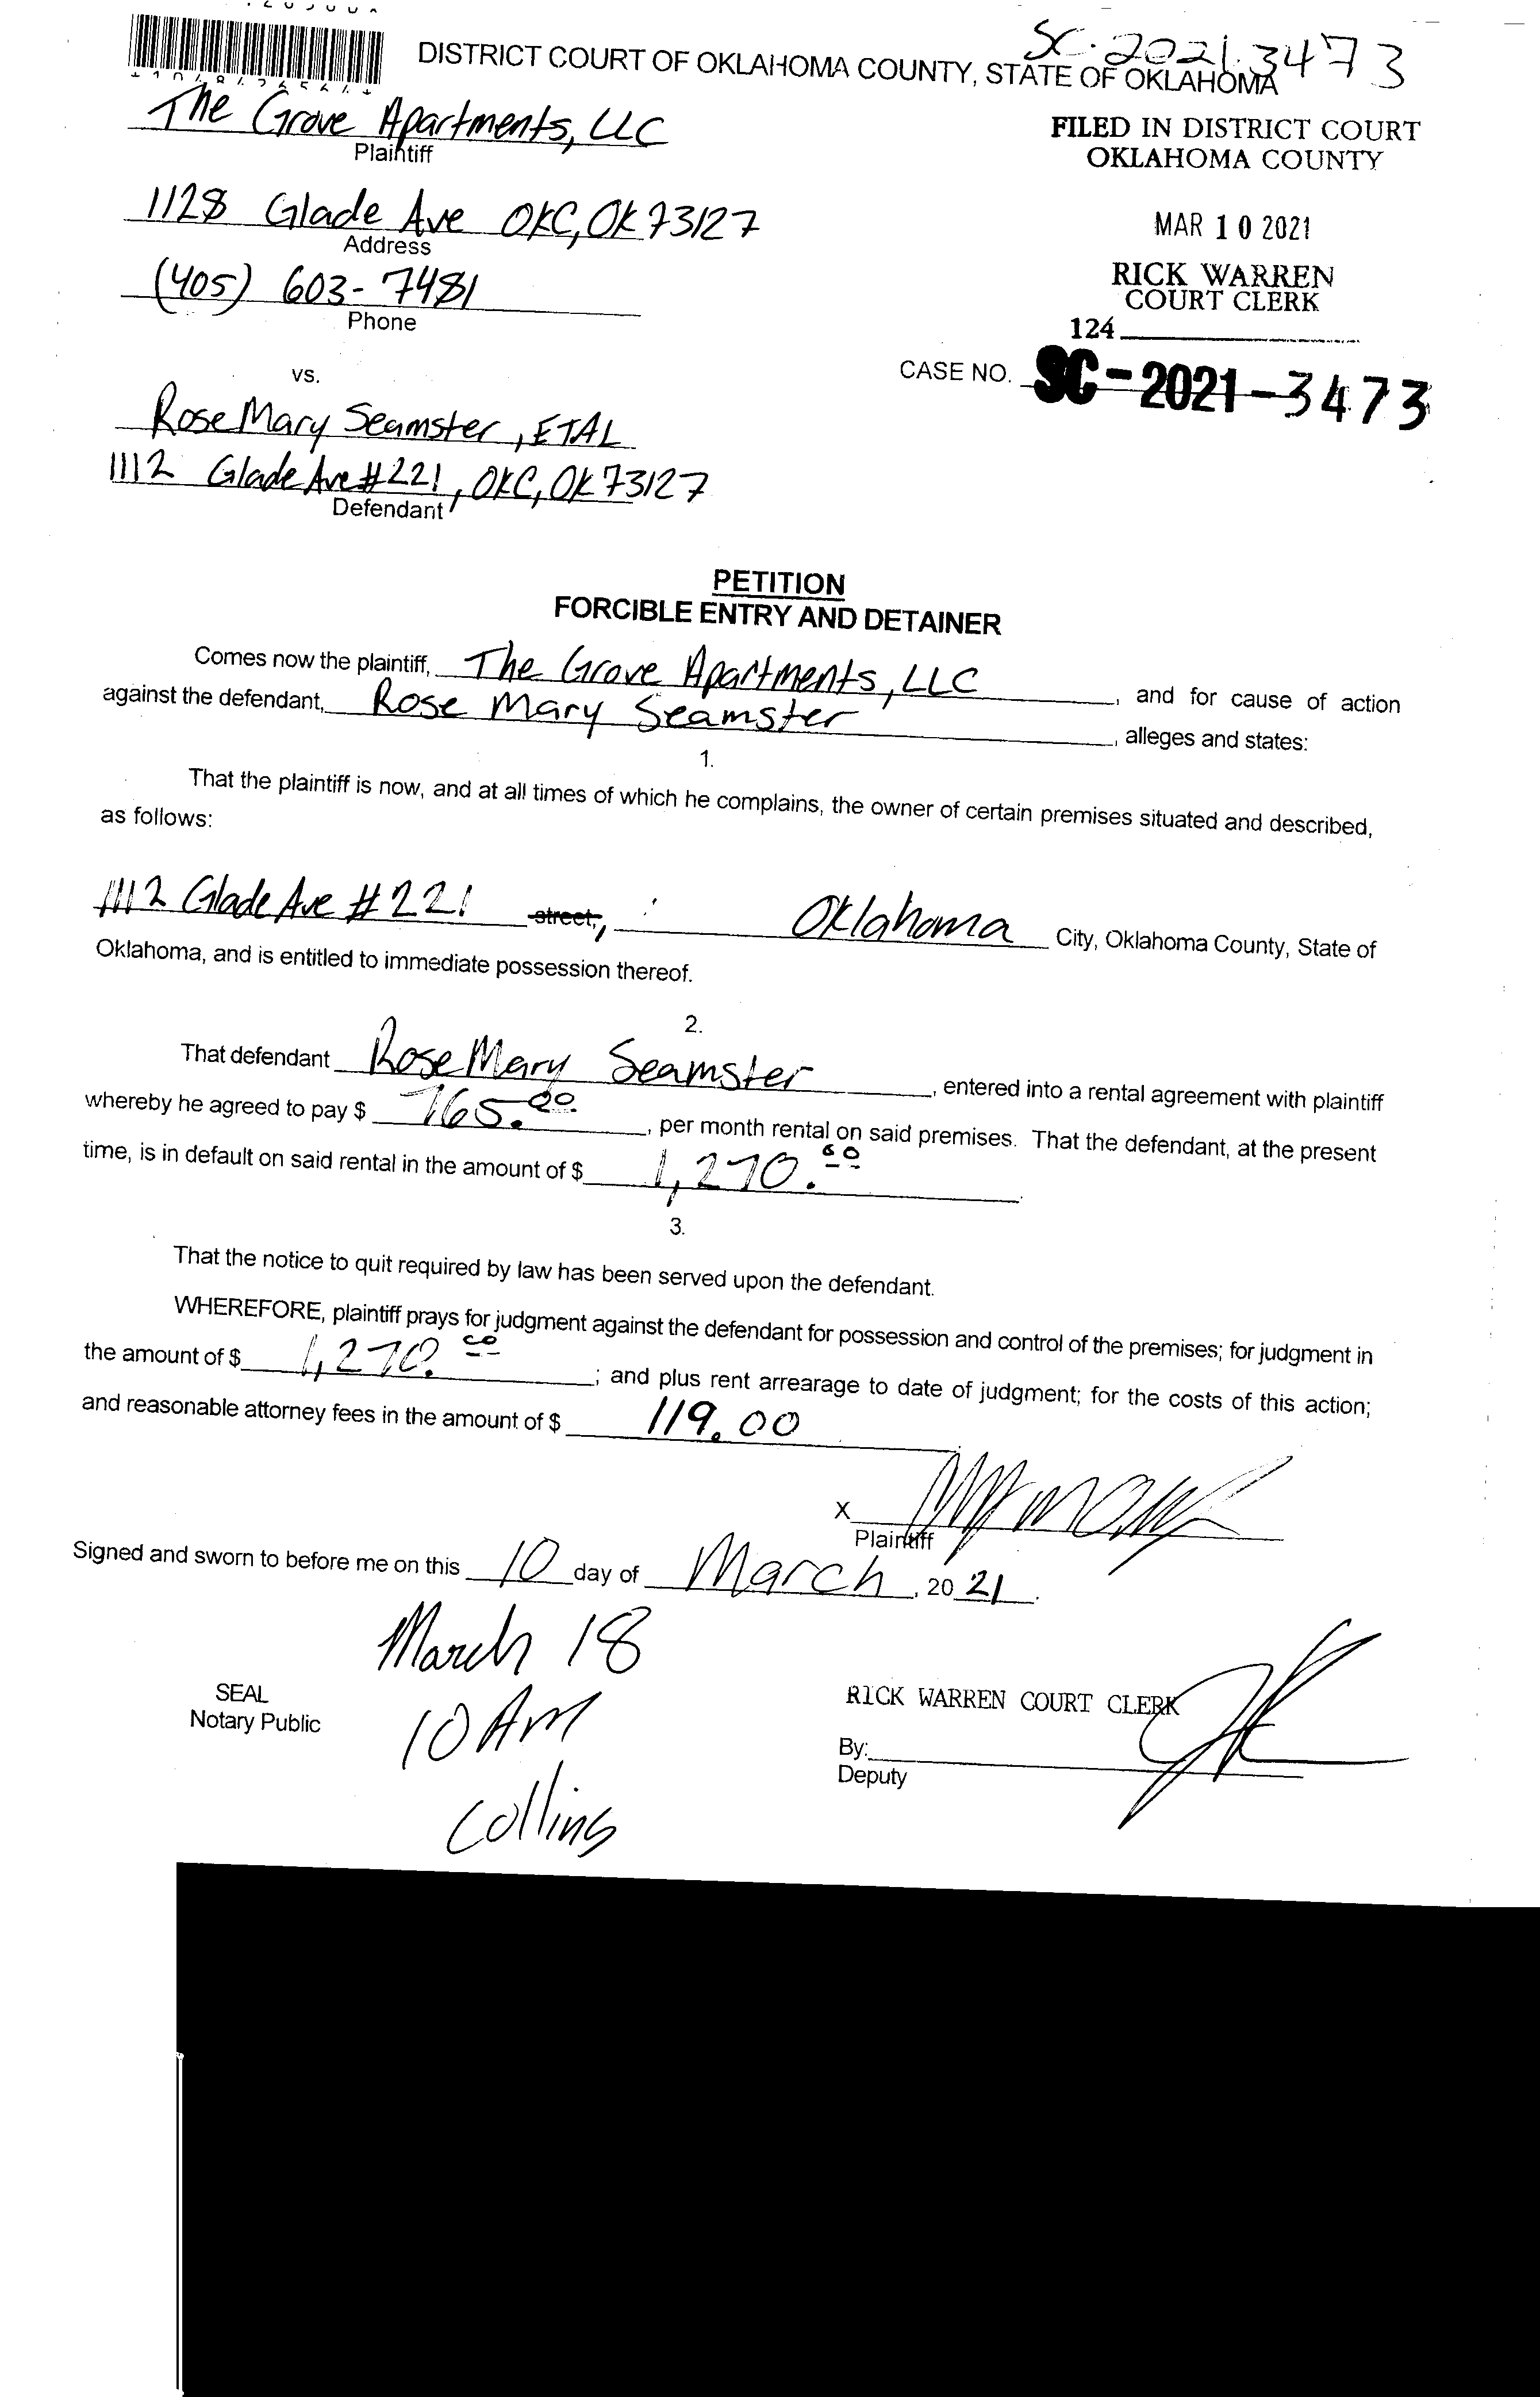 SC-2021-3473
DISTRICT COURT OF OKLAHOMA COUNTY, STATE OF OKLAHOMA
The Grove Apartments, LLC
Plaintiff
FILED IN DISTRICT COURT
OKLAHOMA COUNTY
1128 Glade Ave OKC, OK 73127
Address
MAR 10 2021
(405) 603-7481
Phone
RICK WARREN
COURT CLERK
124
vs.
CASE NO. SC-2021-3473
Rose Mary Seamster, ETAL
1112 Glade Ave #221, OKC, OK 73127
Defendant
PETITION
FORCIBLE ENTRY AND DETAINER
Comes now the plaintiff, The Grove Apartments, LLC, and for cause of action
against the defendant, Rose Mary Seamster, alleges and states:
1.
That the plaintiff is now, and at all times of which he complains, the owner of certain premises situated and described,
as follows:
1112 Glade Ave #221 street, Oklahoma City, Oklahoma County, State of
Oklahoma, and is entitled to immediate possession thereof.
2.
That defendant Rose Mary Seamster, entered into a rental agreement with plaintiff
whereby he agreed to pay $ 765.00, per month rental on said premises. That the defendant, at the present
time, is in default on said rental in the amount of $ 1,270.00.
3.
That the notice to quit required by law has been served upon the defendant.
WHEREFORE, plaintiff prays for judgment against the defendant for possession and control of the premises; for judgment in
the amount of $ 1,270.00; and plus rent arrearage to date of judgment; for the costs of this action;
and reasonable attorney fees in the amount of $ 119.00
X
Plaintiff
Signed and sworn to before me on this 10 day of March, 20 21.
March 18
10 Am
Collins
SEAL
Notary Public
RICK WARREN COURT CLERK
By:
Deputy